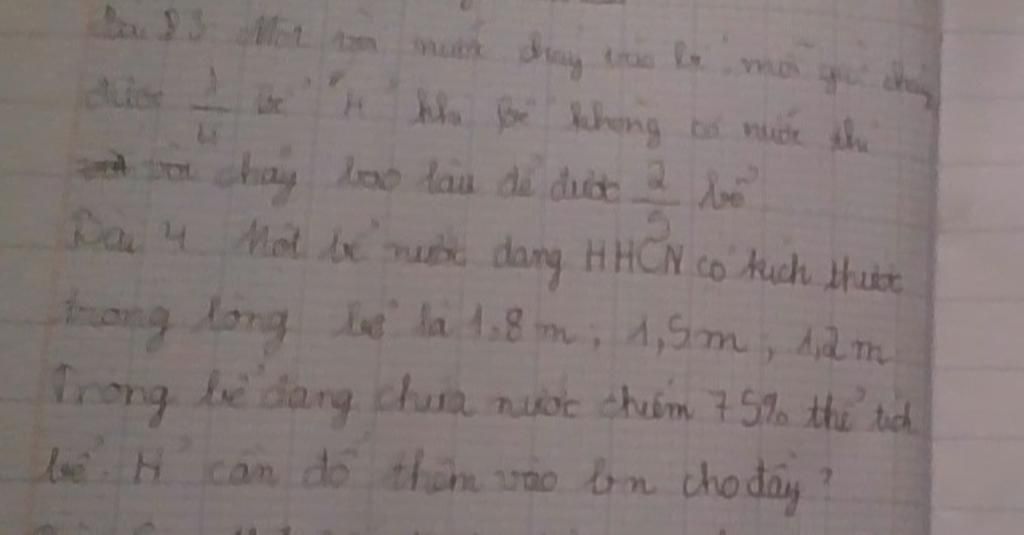 Bài 3 Một vòi nước chảy vào bể, mỗi giờ chảy
được 1/4 bể H khi bể không có nước thì
vòi chảy bao lâu để được 2/5 bể
Bài 4 Một bể nước dạng HHCN có kích thước
trong lòng bể là 1,8m, 1,5m, 1,2m
Trong bể đang chứa nước chiếm 75% thể tích
bể. H cần đổ thêm vào cho đầy?